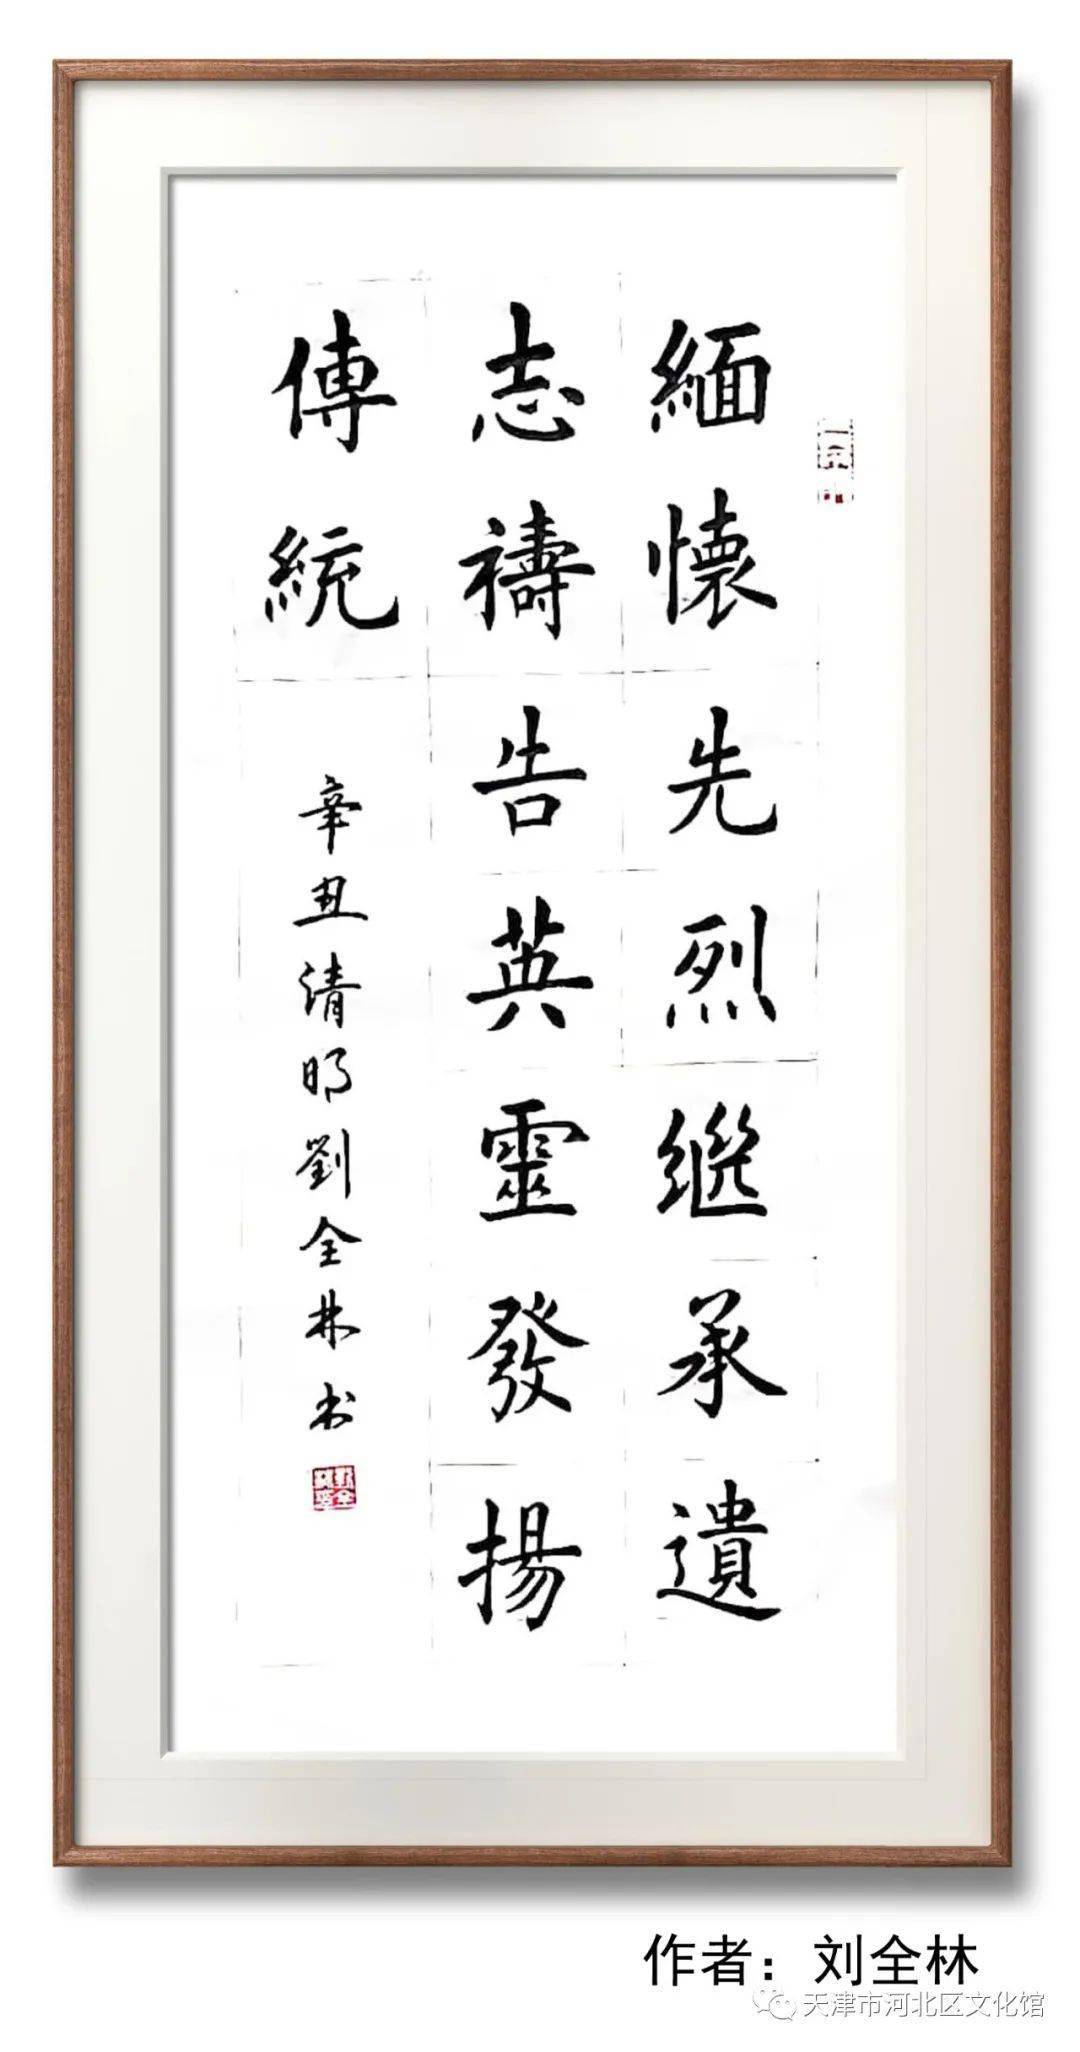 緬懷先烈继承遺
志禱告英靈發揚
傳統
辛丑清明劉全林书
作者：刘全林
天津市河北区文化馆